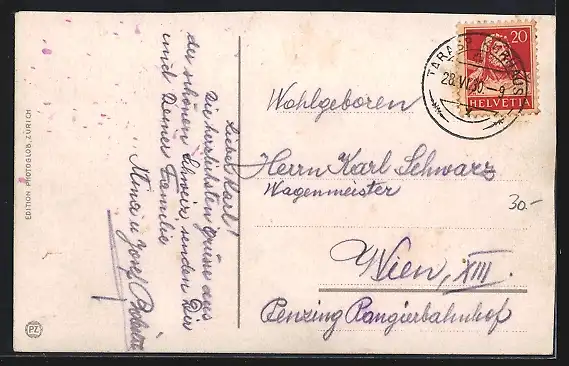 EDITION PHOTOGLOB, ZÜRICH
PZ
Lieber Karl!
Die herzlichsten Grüsse aus
der schönen Schweiz, senden Dir
und Deiner Familie
u Josef
TARASP KURHAUS
28.VI.30 - 9
20
HELVETIA
Wohlgeboren
Herrn Karl Schwarz
Wagenmeister
Wien, XIII.
Penzing Rangierbahnhof
30.-